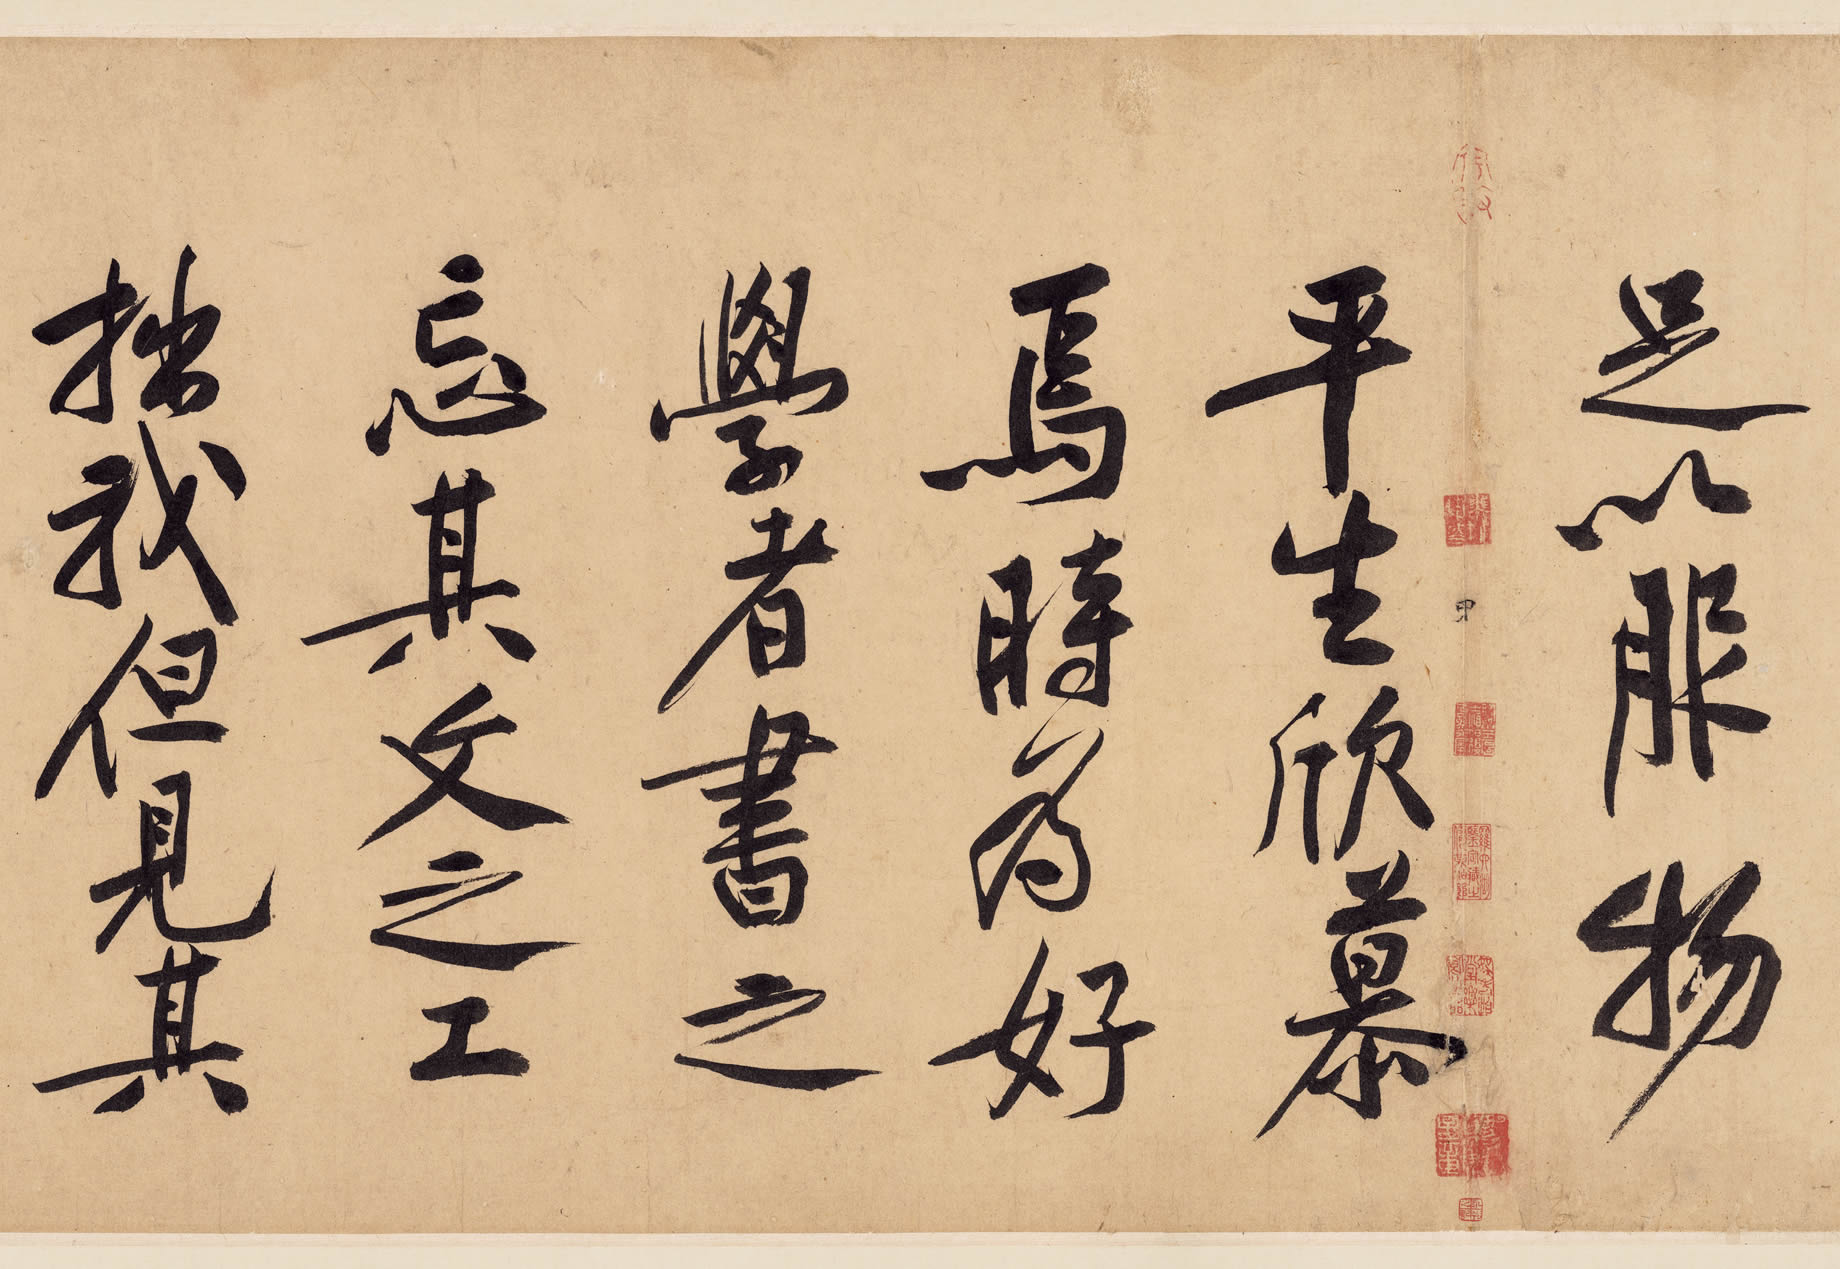 足以服物
平生欣慕
焉時為好
學者書之
忘其文之工
拙我但見其